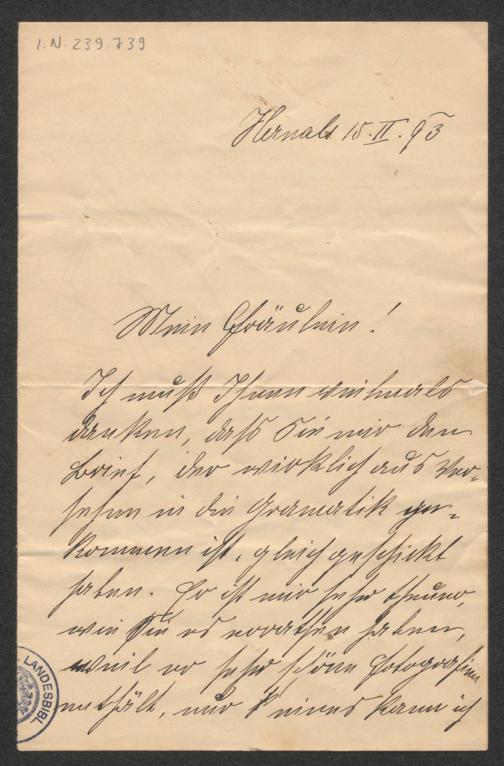 I.N. 239.739
Hernals 15.II.93
Mein Fräulein!
Ich muß Ihnen vielmals
danken, daß Sie mir den
Brief, der wirklich aus Ver-
sehen in die Gramatik ge-
kommen ist, gleich geschickt
haben. Er ist mir sehr theuer,
wie Sie es errathen haben,
weil er sehr schöne Fotografien
enthält, nur Eines kann ich
LANDESBIBL